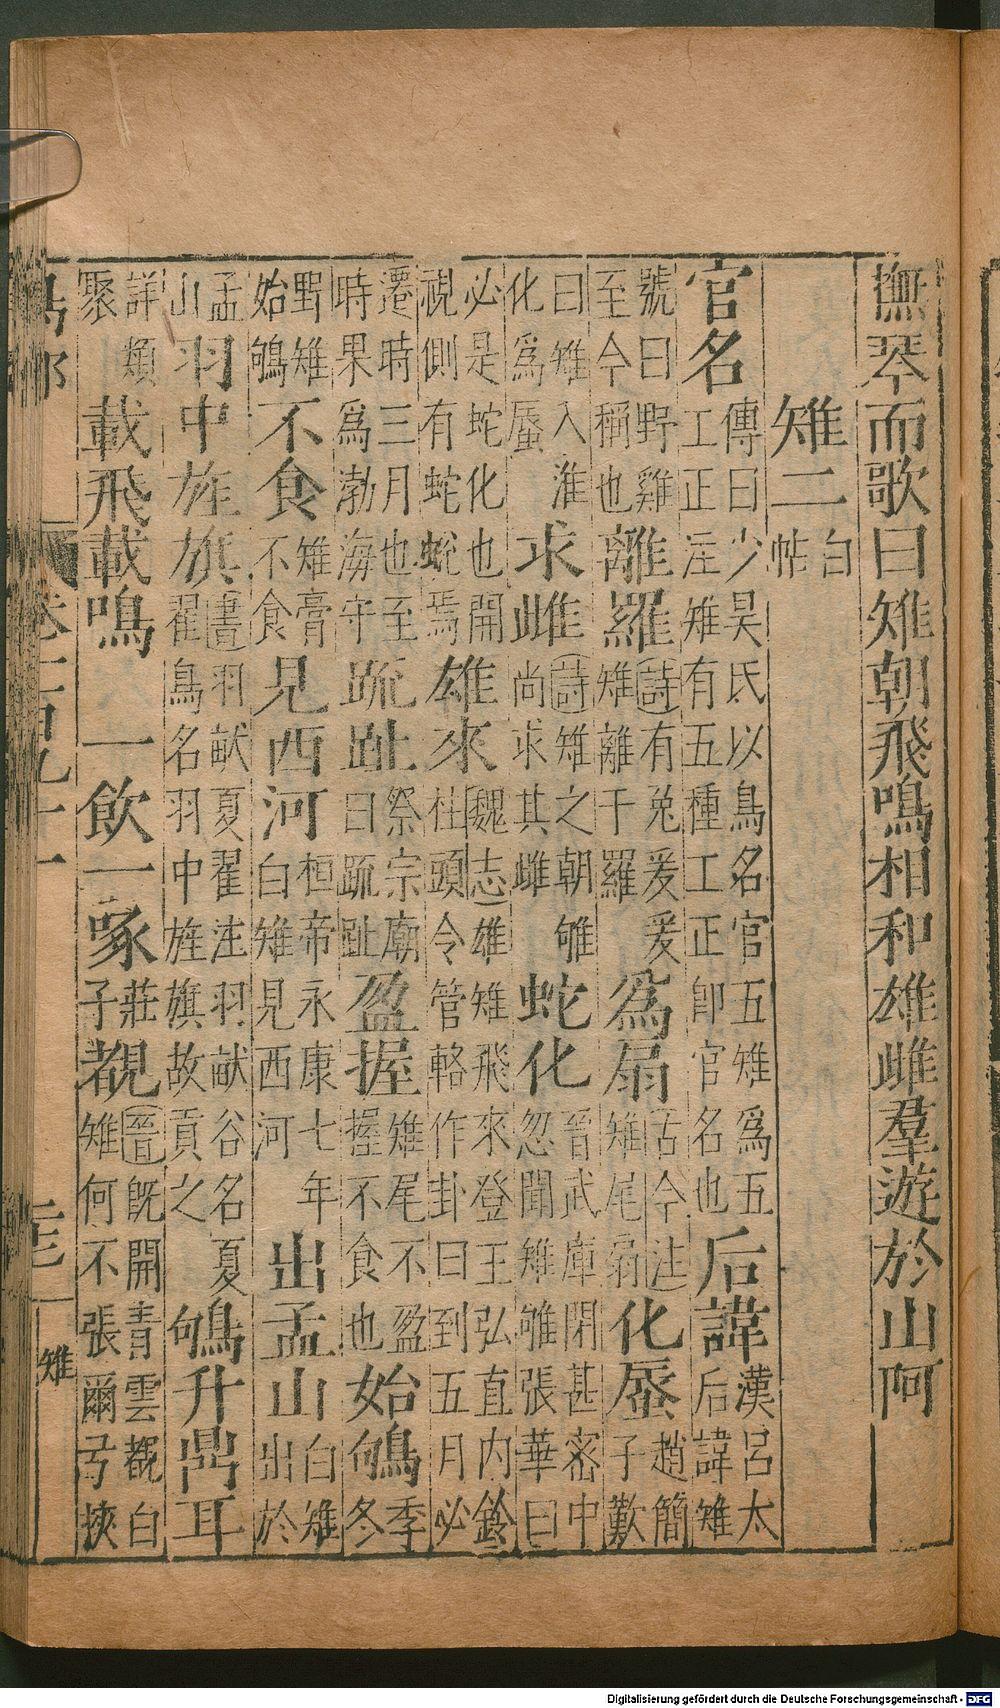 撫琴而歌曰雉朝飛鳴相和雄雌羣遊於山阿
雉二白帖
官名傳曰少昊氏以鳥名官五雉爲五工正注雉有五種工正卽官名也后諱漢呂太后諱雉
號曰野雞至今稱也離羅詩有兔爰爰雉離于羅爲扇古今注雉尾扇化蜃趙簡子歎
曰雉入淮化爲蜃求雌詩雉之朝雊尚求其雌蛇化晉武庫閉甚密中忽聞雉雊張華曰
必是蛇化也開視側有蛇蛻焉雄來魏志雄雉飛來登王弘直内鈴杜頭令管輅作卦曰到五月必
遷時三月也至時果爲渤海守䟽趾祭宗廟曰䟽趾盈握雉尾不盈握不食也始鴝季冬
野雉始鴝不食雉膏不食見西河桓帝永康七年白雉見西河出孟山白雉出於
孟山羽中旌旗書羽畎夏翟注羽畎谷名夏翟鳥名羽中旌旗故貢之鴝升鼎耳
詳類聚載飛載鳴一飲一啄莊子覩晉旣開青雲覩白雉何不張爾弓挾
雉